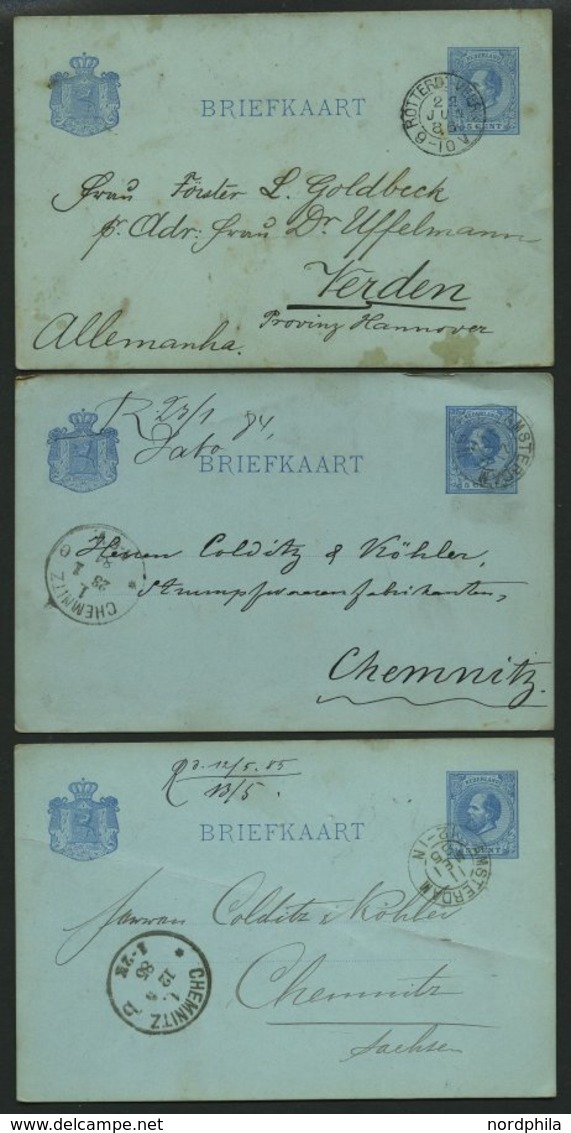 BRIEFKAART
NEDERLAND
5 CENT
ROTTERD
22
JUN
6-10V
Frau Förster L. Goldbeck
pr. Adr: Frau Dr Uffelmann
Verden
Provinz Hannover
Allemanha.
R 23/1 84,
Dato
BRIEFKAART
NEDERLAND
AMSTERDAM
CHEMNITZ
1
23
1
84
Herren Colditz & Köhler,
Strumpfwaarenfabrikanten,
Chemnitz.
12/5.85
13/5.
BRIEFKAART
NEDERLAND
5 CENT
AMSTERDAM
CHEMNITZ
1.
12
5
85
1-2N
Herren Colditz & Köhler
Chemnitz
Sachsen
nordphila